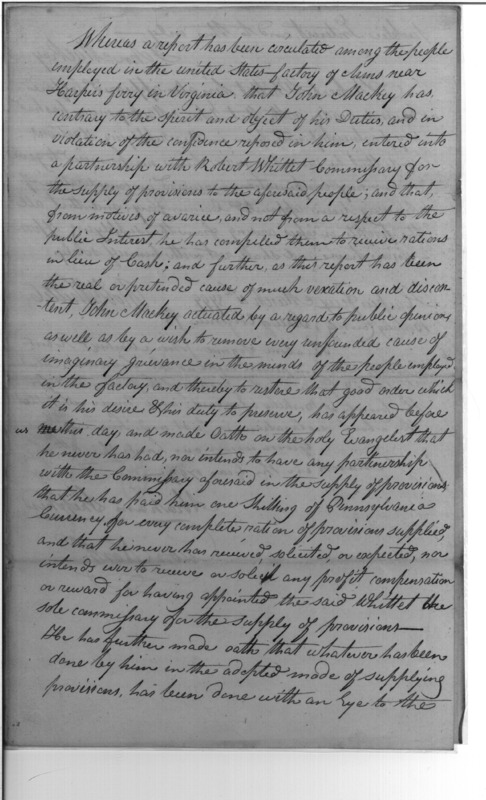 Whereas a report has been circulated among the people
employed in the united States factory of Arms near
Harpers ferry in Virginia that John Mackey has,
contrary to the spirit and object of his Duties, and in
violation of the confidence reposed in him, entered into
a partnership with Robert Whittet Commissary for
the supply of provisions to the aforesaid people; and that,
from motives of avarice, and not from a respect to the
public Interest, he has compelled them to receive rations
in lieu of Cash; and further, as this report has been
the real or pretended cause of much vexation and discon
-tent, John Mackey actuated by a regard to public opinion,
as well as by a wish to remove every unfounded cause of
imaginary grievance in the minds of the people employed
in the factory, and thereby to restore that good order which
it is his desire & his duty to preserve, has appeared before
us me this day, and made Oath on the holy Evangelist that
he never has had, nor intends to have any partnership
with the Commissary aforesaid in the supply of provisions
that he has paid him one Shilling of Pennsylvania
Currency, for every complete ration of provisions supplied,
and that he never has received, solicited, or expected, nor
intends ever to receive or solicit any profit compensation
or reward for having appointed the said Whittet the
sole commissary for the supply of provisions—
He has further made oath that whatever has been
done by him in the adopted mode of supplying
provisions, has been done with an Eye to the